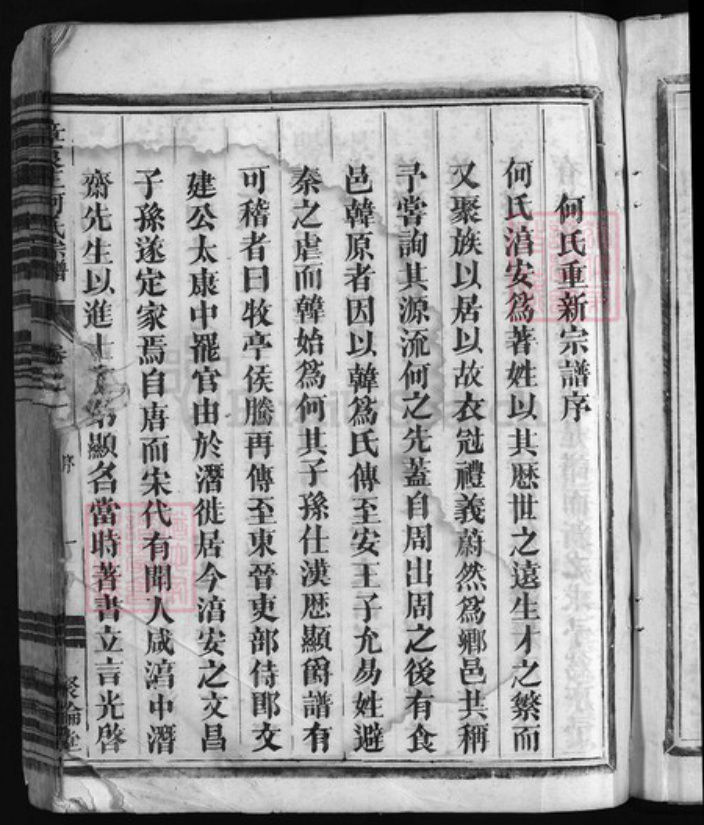 何氏重新宗譜序
何氏淯安為著姓以其歷世之遠生才之繁而
又聚族以居以故衣冠禮義蔚然為鄉邑共稱
予嘗詢其源流何之先蓋自周出周之後有食
邑韓原者因以韓為氏傳至安王子允易姓避
秦之虐而韓始為何其子孫仕漢歷顯爵譜有
可稽者曰牧亭侯騰再傳至東晉吏部侍郎文
建公太康中罷官由於潛徙居今淯安之文昌
子孫遂定家焉自唐而宋代有聞人咸淯中潛
齋先生以進士 第顯名當時著書立言光啓
何氏宗譜
序
一
聚倫堂